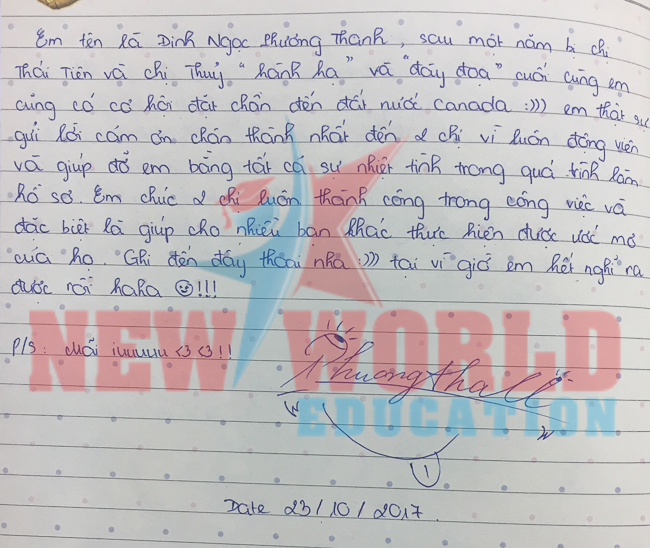 Em tên là Đinh Ngọc Phương Thanh, sau một năm bị chị
Thái Tiên và chị Thuỷ "hành hạ" và "đày đoạ" cuối cùng em
cũng có cơ hội đặt chân đến đất nước Canada :))) em thật sự
gửi lời cám ơn chân thành nhất đến 2 chị vì luôn động viên
và giúp đỡ em bằng tất cả sự nhiệt tình trong quá trình làm
hồ sơ. Em chúc 2 chị luôn thành công trong công việc và
đặc biệt là giúp cho nhiều bạn khác thực hiện được ước mơ
của họ. Ghi đến đây thoai nha :))) tại vì giờ em hết nghĩ ra
được rồi haha ☺!!!
P/S: Mãi iuuuuu <3 <3 !!
Phuongthanh
NEW WORLD
EDUCATION
Date 23/10/2017.